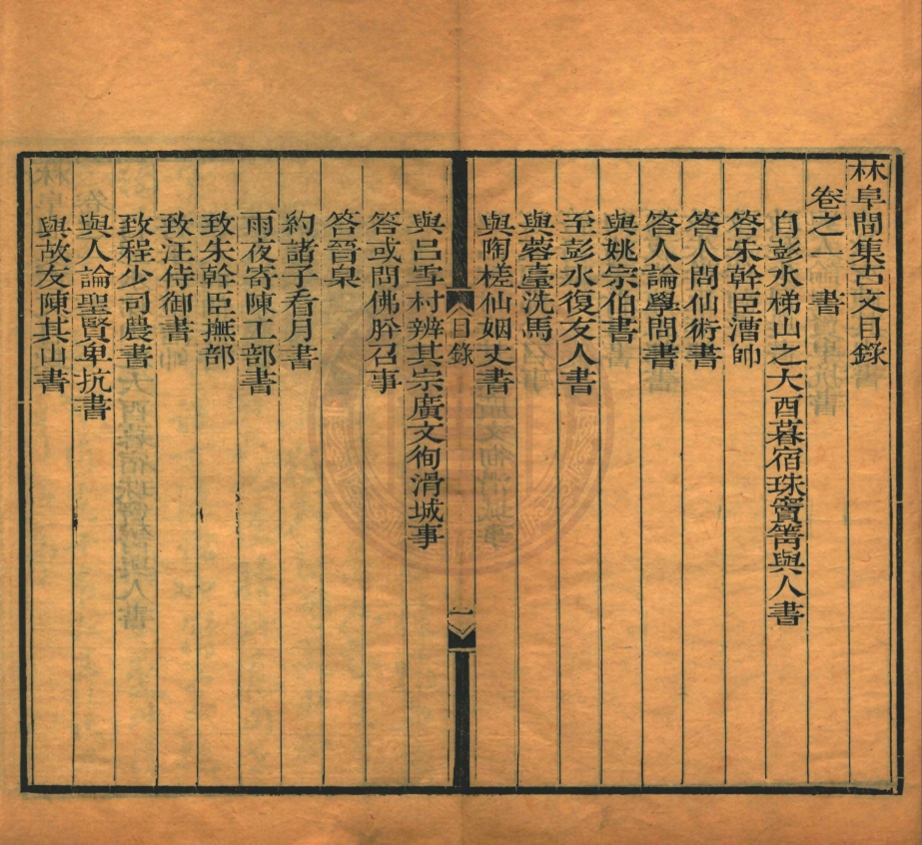 林阜間集古文目錄
卷之一 書
自彭水梯山之大酉暮宿珠寶箐與人書
答朱幹臣漕帥
答人問仙術書
答人論學問書
與姚宗伯書
至彭水復友人書
與蓉臺洗馬
與陶槎仙姻丈書
目錄
一
與呂雪村辨其宗廣文徇滑城事
答或問佛肸召事
答晉臬
約諸子看月書
雨夜寄陳工部書
致朱幹臣撫部
致汪侍御書
致程少司農書
與人論聖賢卑抗書
與故友陳其山書